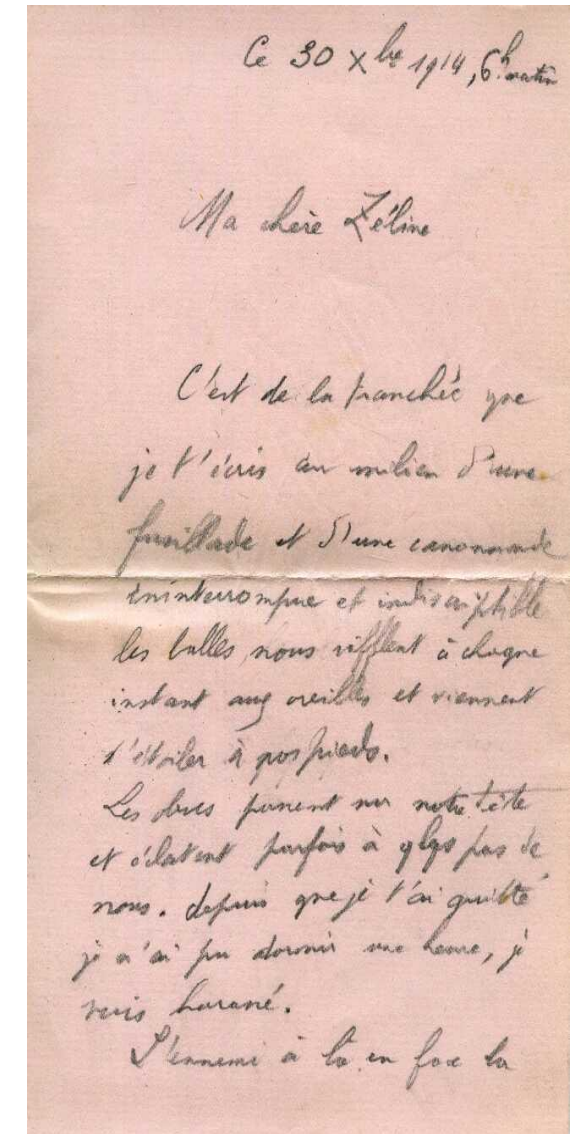 Ce 30 Xbre 1914, 6h matin
Ma chère Zéline
C'est de la tranchée que
je t'écris au milieu d'une
fusillade et d'une canonnade
ininterrompue et indisciptible
les balles nous sifflent à chaque
instant aux oreilles et viennent
s'étoiler à nos pieds.
Les obus passent sur notre tête
et éclatent parfois à qlqs pas de
nous. depuis que je t'ai quitté
je n'ai pu dormir une heure, je
suis harassé.
L'ennemi à là en face la